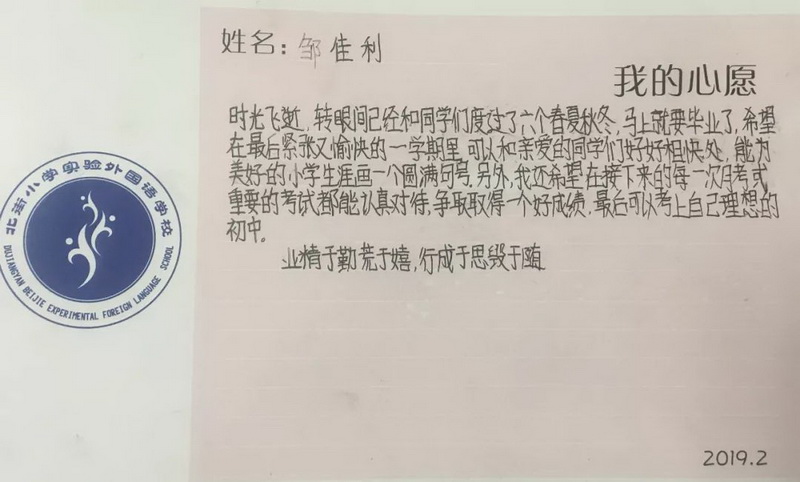 姓名：邹佳利
我的心愿
时光飞逝，转眼间已经和同学们度过了六个春夏秋冬，马上就要毕业了，希望
在最后紧张又愉快的一学期里，可以和亲爱的同学们好好相快处，能为
美好的小学生涯画一个圆满句号。另外，我还希望在接下来的每一次月考或
重要的考试都能认真对待，争取取得一个好成绩，最后可以考上自己理想的
初中。
业精于勤荒于嬉，行成于思毁于随
2019.2
北街小学实验外国语学校
DUJIANGYAN BEIJIE EXPERIMENTAL FOREIGN LANGUAGE SCHOOL